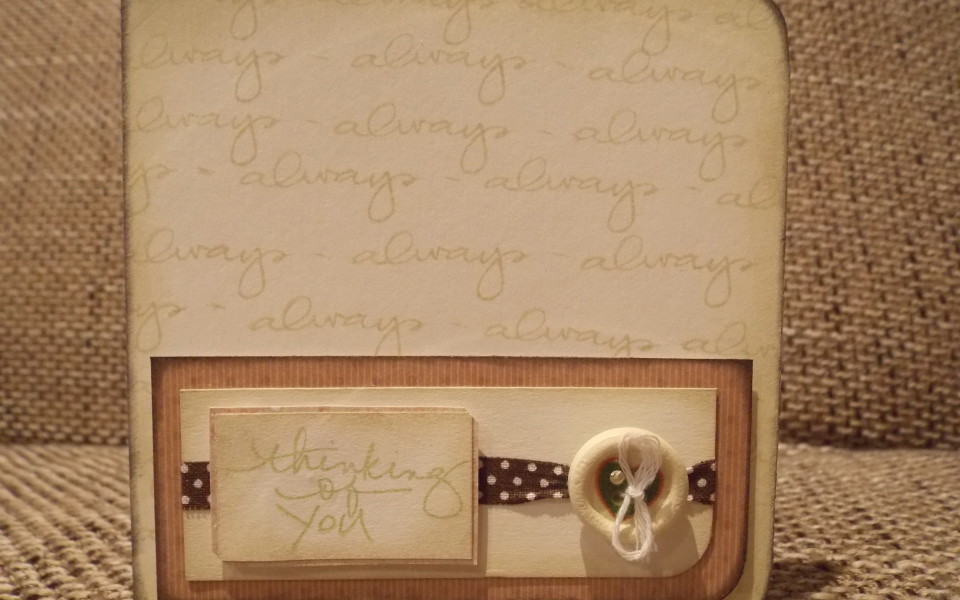 always always always al
always - always - always
always - always - always
ys - always - always - al
always - always - always
ys - always - always - al
thinking
of
you